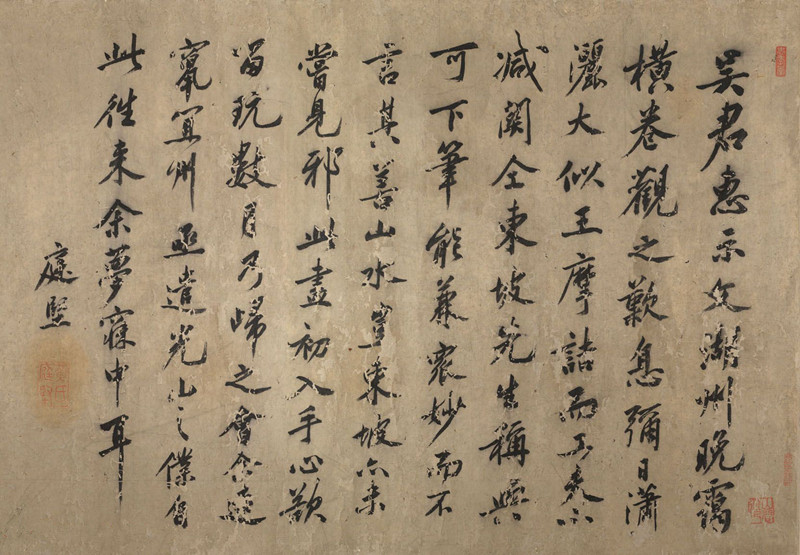 吳君惠示文湖州晚靄
橫卷觀之歎息彌日瀟
灑大似王摩詰而工夫不
減關仝東坡先生稱與
可下筆能兼衆妙而不
言其善山水豈東坡亦未
嘗見邪此畫初入手心欲
留玩數月乃歸之會余遷
竄宜州亟遣光山之僕自
此往來余夢寐中耳
庭堅